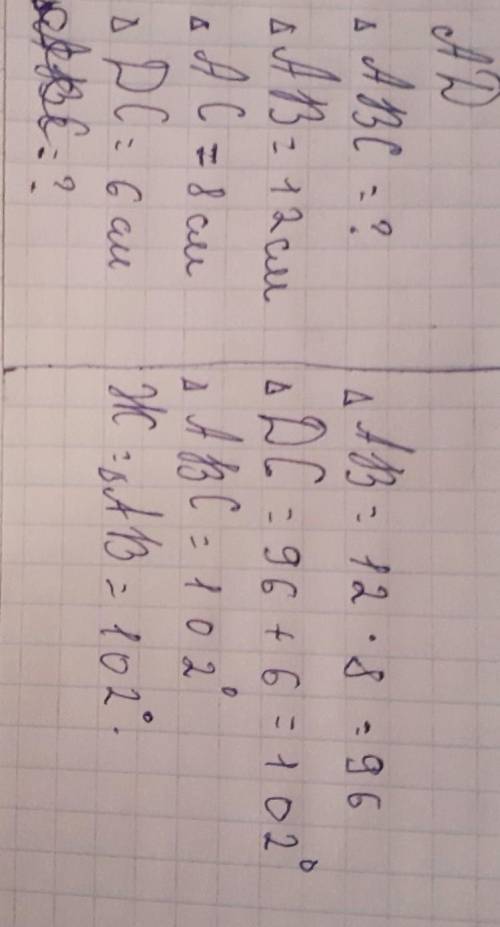 AD
△ ABC = ?
△ AB = 12 см
△ AC = 8 см
△ DC = 6 см
= ?
△ AB = 12 · 8 = 96
△ DC = 96 + 6 = 102°
△ ABC = 102°
Ж = △AB = 102°.